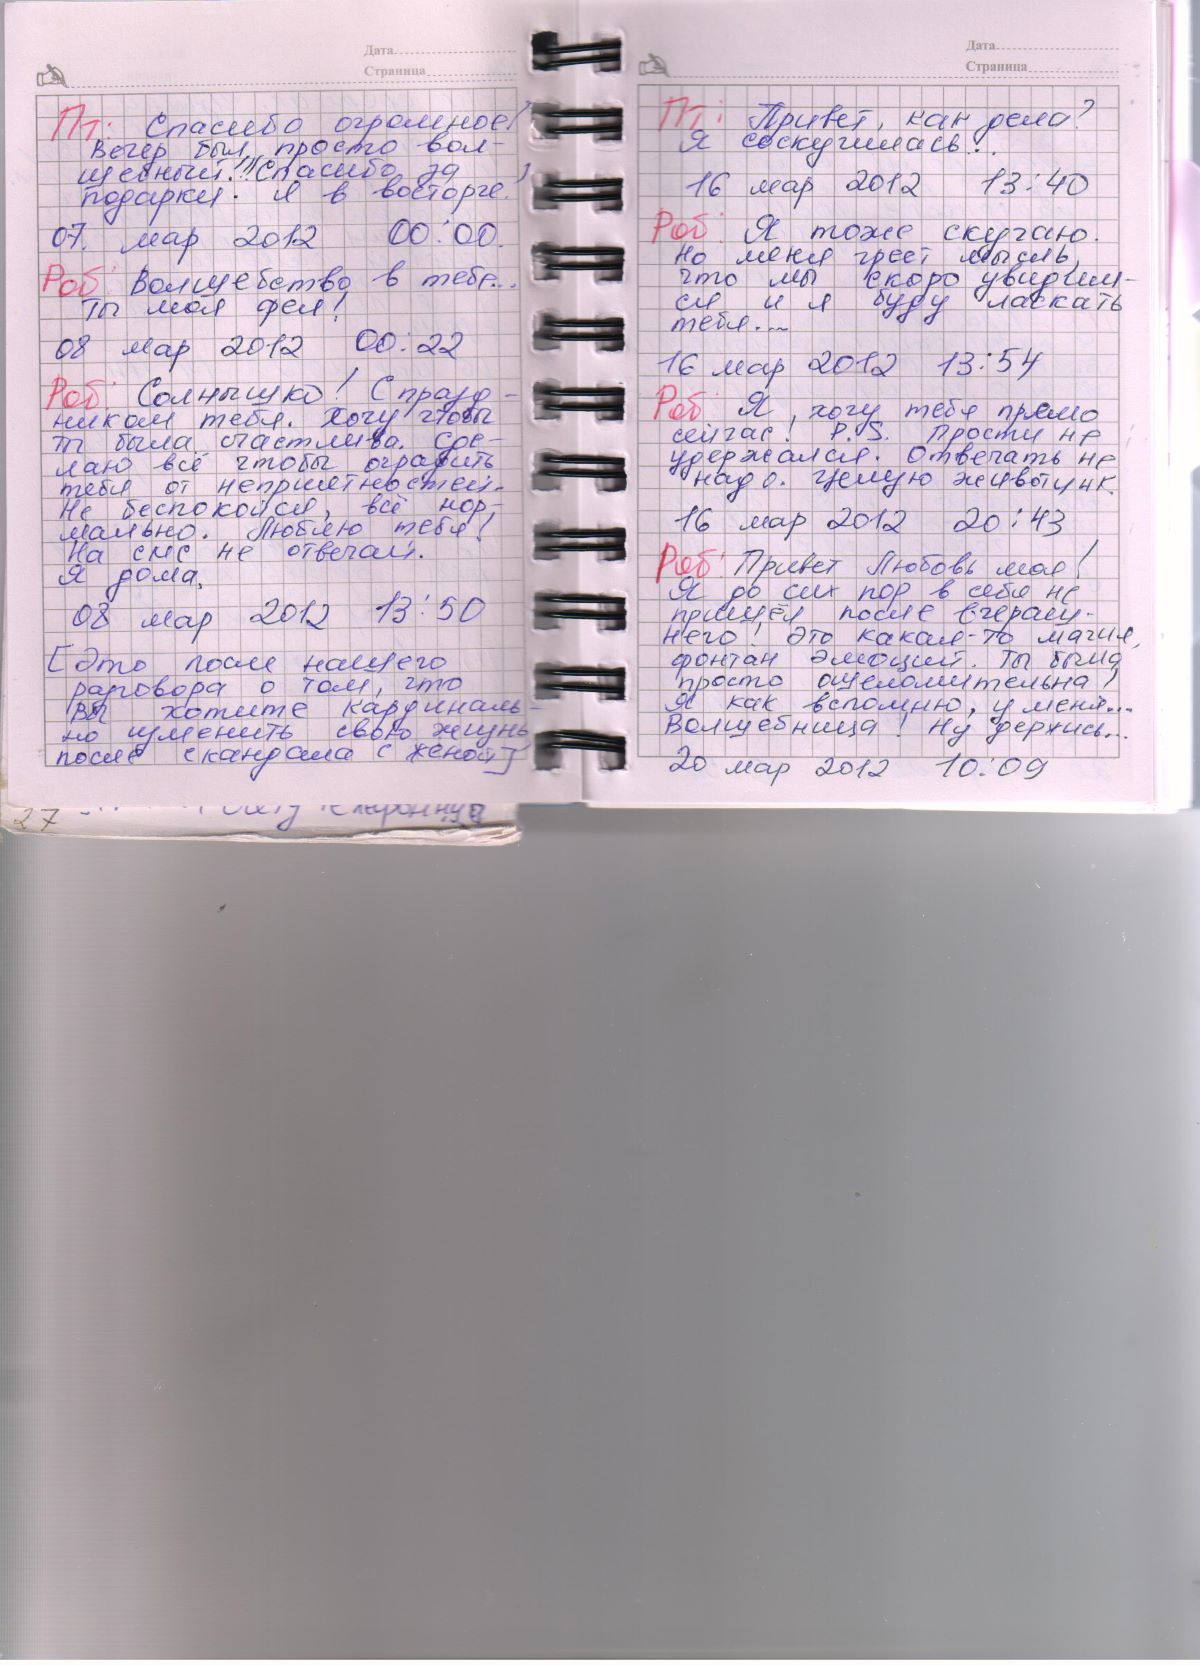 Дата
Страница
Пт: Спасибо огромное!
Вечер был просто вол-
шебный!!! Спасибо за
подарки. Я в восторге!
07. мар 2012 00:00.
Роб: Волшебство в тебе...
Ты моя фея!
08 мар 2012 00:22
Роб: Солнышко! С празд-
ником тебя. Хочу чтобы
ты была счастлива. Сде-
лаю всё чтобы оградить
тебя от неприятностей.
Не беспокойся, всё нор-
мально. Люблю тебя!
На смс не отвечай.
Я дома.
08 мар 2012 13:50
[Это после нашего
разговора о том, что
Вы хотите кардиналь-
но изменить свою жизнь
после скандала с женой]
27
Дата
Страница
Пт: Привет, как дела?
Я соскучилась...
16 мар 2012 13:40
Роб: Я тоже скучаю.
Но меня греет мысль,
что мы скоро увидим-
ся и я буду ласкать
тебя....
16 мар 2012 13:54
Роб: Я, хочу тебя прямо
сейчас! P.S. Прости не
удержался. Отвечать не
надо. Целую животик.
16 мар 2012 20:43
Роб: Привет Любовь моя!
Я до сих пор в себя не
пришёл после вчераш-
него! Это какая-то магия,
фонтан эмоций. Ты была
просто ошеломительна!
Я как вспомню, у меня....
Волшебница! Ну держись...
20 мар 2012 10:09